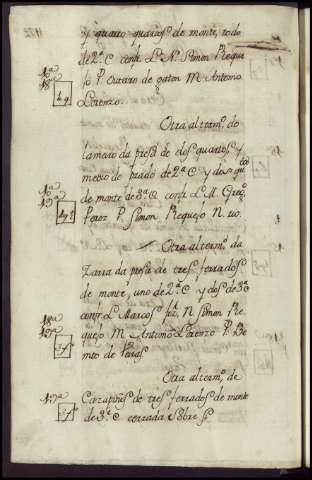 y quarto quartos de monte, todo
de 2ª C confr. L. N. Simon Reque
jo P. de gaton M. Antonio
Lorenzo.
Otra al term.º do
Lameiro da presa de dos quartos y
medio de prado de 2ª C y dos qu
de monte de 3ª C confr. L. M. Greg.º
Perez P. Simon Requejo N. rio.
Otra al term.º da
Zarra da presa de tres ferrados
de monte, uno de 2ª C y dos de 3ª
confr. L. Marcos frz. N. Simon Re
quejo M. Antonio Lorenzo P. Be
nito de
Otra al term.º de
de tres ferrados de monte
de 3ª C cerrada sobre si